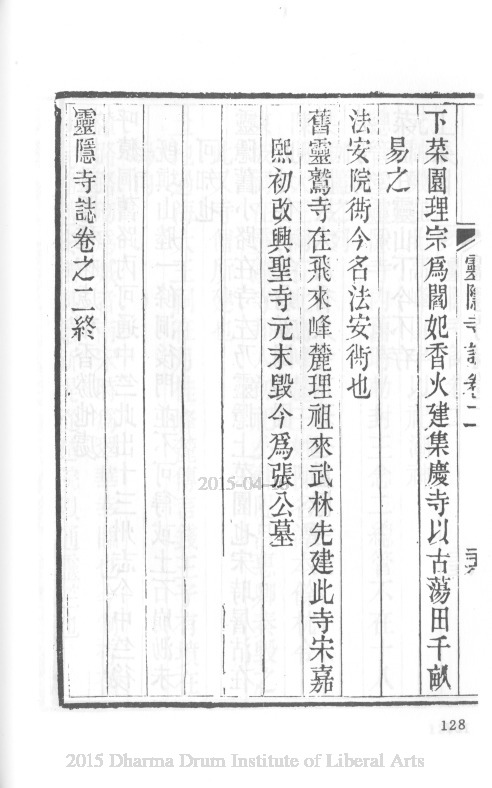 靈隱寺誌卷二
下菜園理宗爲閻妃香火建集慶寺以古蕩田千畝
易之
法安院衖今名法安衖也
舊靈鷲寺在飛來峰麓理祖來武林先建此寺宋嘉
熙初改興聖寺元末毀今爲張公墓
靈隱寺誌卷之二終
128
2015 Dharma Drum Institute of Liberal Arts